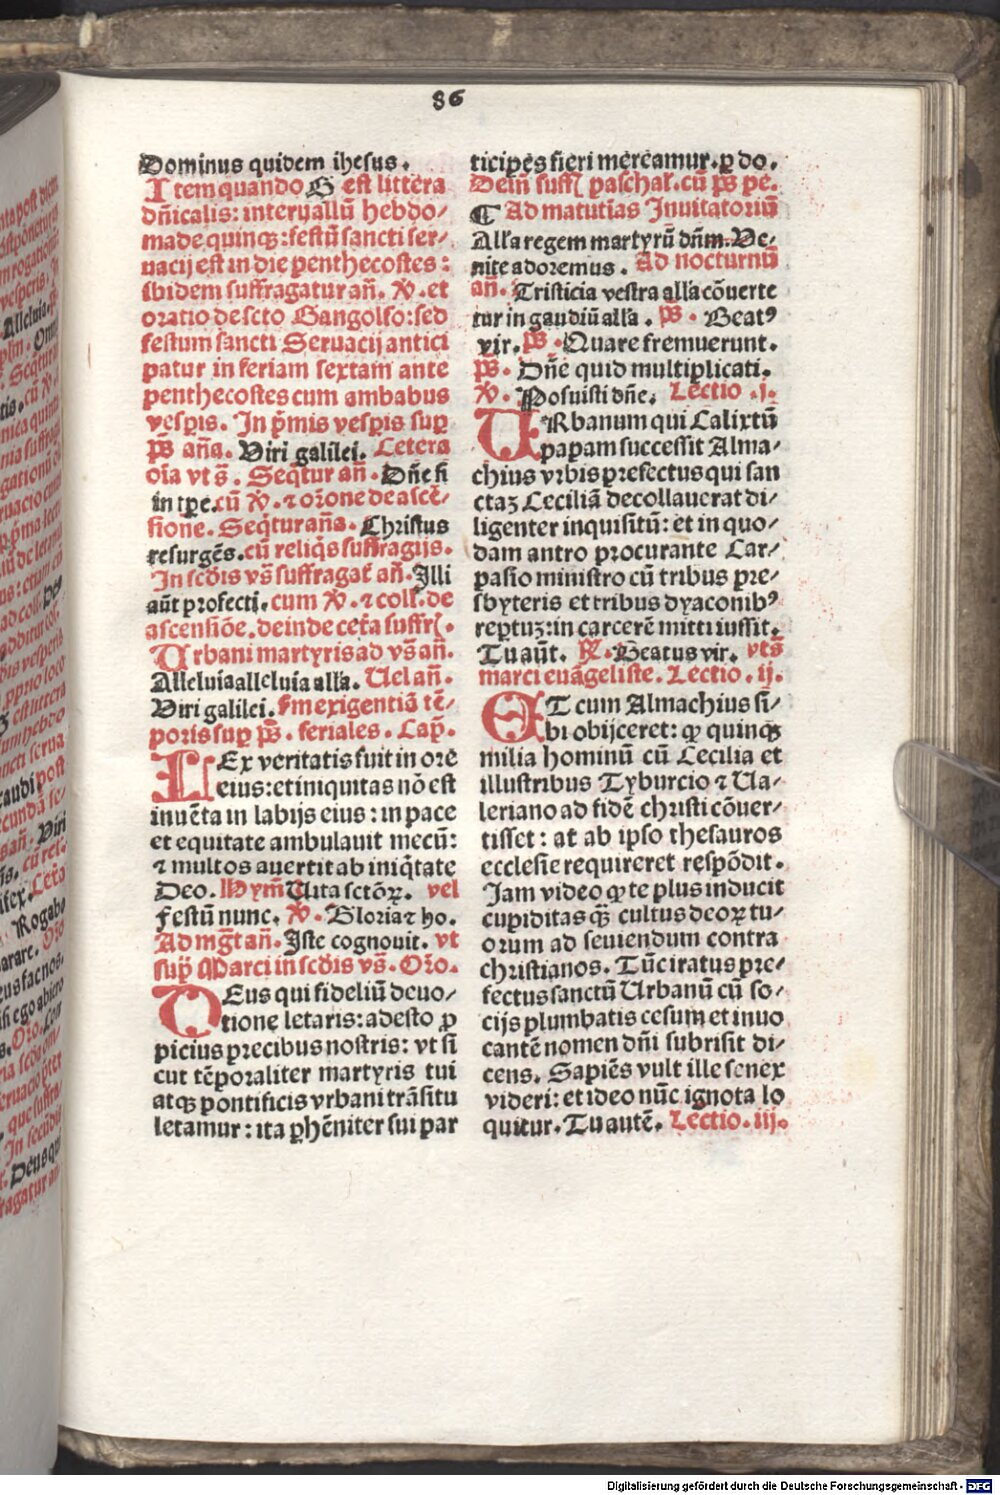 86
Dominus quidem ihesus.
Item quando G est littera
dñicalis: interuallū hebdo/
made quinq;: festū sancti ser/
uacij est in die penthecostes:
ibidem suffragatur añ. ℣. et
oratio de scto Gangolfo: sed
festum sancti Seruacij antici
patur in feriam sextam ante
penthecostes cum ambabus
vespis. In pmis vespis sup
ps aña. Viri galilei. Cetera
oīa vt s̄. Seqtur añ. Dñe si
in tpe. cū ℣. ⁊ orone de ascē/
sione. Seqtur aña. Christus
resurgēs. cū reliqs suffragijs.
In scdis vs̄ suffragat añ. Illi
aūt profecti. cum ℣. ⁊ coll. de
ascensiōe. deinde ceta suffr.
Urbani martyris ad vs̄ añ.
Alleluia alleluia alla. Uel añ.
Viri galilei. sm exigentiā tē/
poris sup ps. feriales. Cap.
LEx veritatis fuit in ore
eius: et iniquitas nō est
inuēta in labijs eius: in pace
et equitate ambulauit mecū:
⁊ multos auertit ab iniqtate
Deo. Hym Uita sctoꝝ. vel
Festū nunc. ℣. Gloria ⁊ ho.
Ad mgt añ. Iste cognouit. vt
sup Marci in scdis vs̄. Oro.
DEus qui fideliū deuo/
tione letaris: adesto ꝓ
picius precibus nostris: vt si
cut tēporaliter martyris tui
atq; pontificis vrbani trāsitu
letamur: ita ꝑhēniter sui par
ticipes fieri mereamur. ꝑ do.
Dein suff paschal. cū ps pe.
¶ Ad matutias Inuitatoriū
Alla regem martyrū dñm. Ve/
nite adoremus. Ad nocturnū
añ. Tristicia vestra alla cōuerte
tur in gaudiū alla. ps. Beatꝰ
vir. ps. Quare fremuerunt.
ps. Dñe quid multiplicati.
℣. Posuisti dñe. Lectio .i.
URbanum qui Calixtū
papam successit Alma/
chius vrbis prefectus qui san
ctaꝫ Ceciliā decollauerat di/
ligenter inquisitū: et in quo/
dam antro procurante Car/
pasio ministro cū tribus pre/
sbyteris et tribus dyaconibꝰ
reptuꝫ: in carcerē mitti iussit.
Tu aūt. ℟. Beatus vir. vt s̄
marci euāgeliste. Lectio .ij.
ET cum Almachius si/
bi obijceret: ꝙ quinq;
milia hominū cū Cecilia et
illustribus Tyburcio ⁊ Ua/
leriano ad fidē christi cōuer/
tisset: at ab ipso thesauros
ecclesie requireret respōdit.
Jam video ꝙ te plus inducit
cupiditas q̄ꝫ cultus deoꝝ tu/
orum ad seuiendum contra
christianos. Tūc iratus pre/
fectus sanctū Urbanū cū so/
cijs plumbatis cesum et inuo
cantē nomen dñi subrisit di/
cens. Sapiēs vult ille senex
videri: et ideo nūc ignota lo
quitur. Tu autē. Lectio .iij.
Digitalisierung gefördert durch die Deutsche Forschungsgemeinschaft - DFG